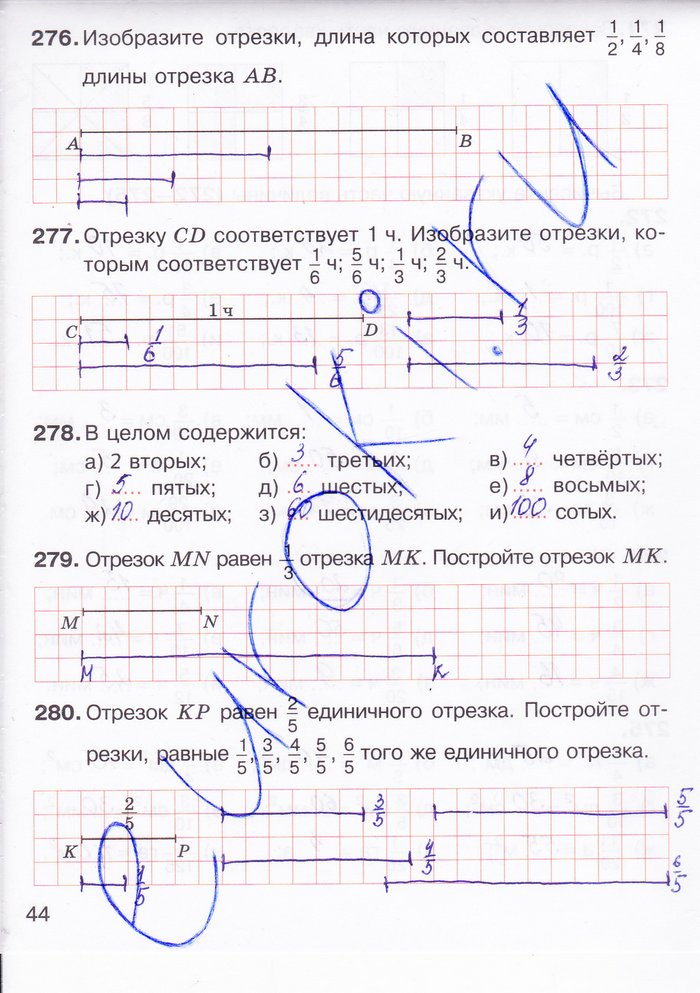 276. Изобразите отрезки, длина которых составляет 1/2, 1/4, 1/8
длины отрезка AB.
A B
277. Отрезку CD соответствует 1 ч. Изобразите отрезки, ко-
торым соответствуют 1/6 ч; 5/6 ч; 1/3 ч; 2/3 ч.
1 ч
C D
1/6 1/3
5/6 2/3
278. В целом содержится:
а) 2 вторых; б) 3 третьих; в) 4 четвёртых;
г) 5 пятых; д) 6 шестых; е) 8 восьмых;
ж) 10 десятых; з) 60 шестидесятых; и) 100 сотых.
279. Отрезок MN равен 1/3 отрезка MK. Постройте отрезок MK.
M N
M K
280. Отрезок KP равен 2/5 единичного отрезка. Постройте от-
резки, равные 1/5, 3/5, 4/5, 5/5, 6/5 того же единичного отрезка.
2/5 3/5 5/5
K P
4/5
1/5 6/5
44